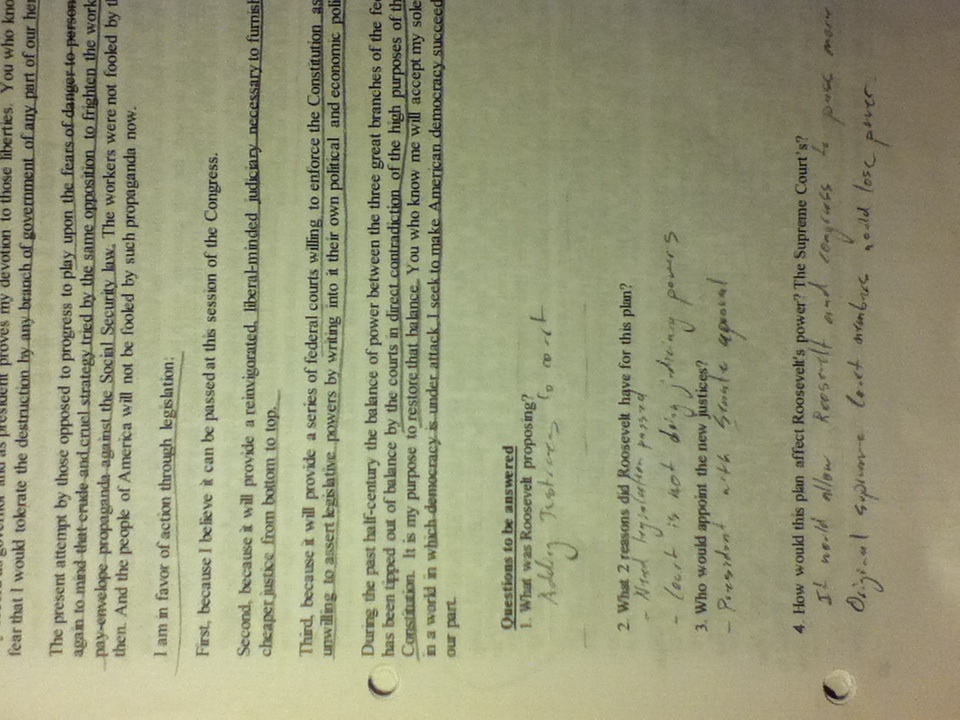 as governor and as president proves my devotion to those liberties. You who kno
fear that I would tolerate the destruction by any branch of government of any part of our her
The present attempt by those opposed to progress to play upon the fears of danger to person
again to mind that crude and cruel strategy tried by the same opposition to frighten the work
pay-envelope propaganda against the Social Security law. The workers were not fooled by t
then. And the people of America will not be fooled by such propaganda now.
I am in favor of action through legislation:
First, because I believe it can be passed at this session of the Congress.
Second, because it will provide a reinvigorated, liberal-minded judiciary necessary to furnish
cheaper justice from bottom to top.
Third, because it will provide a series of federal courts willing to enforce the Constitution as
unwilling to assert legislative powers by writing into it their own political and economic poli
During the past half-century the balance of power between the three great branches of the fe
has been tipped out of balance by the courts in direct contradiction of the high purposes of th
Constitution. It is my purpose to restore that balance. You who know me will accept my sole
in a world in which democracy is under attack, I seek to make American democracy succeed
our part.
Questions to be answered
1. What was Roosevelt proposing?
Adding Justices to court
2. What 2 reasons did Roosevelt have for this plan?
- Need legislation passed
- Court is not doing judiciary powers
3. Who would appoint the new justices?
- President with Senate
4. How would this plan affect Roosevelt's power? The Supreme Court's?
It would allow Roosevelt and congress to pass more
Original supreme Court members would lose power.